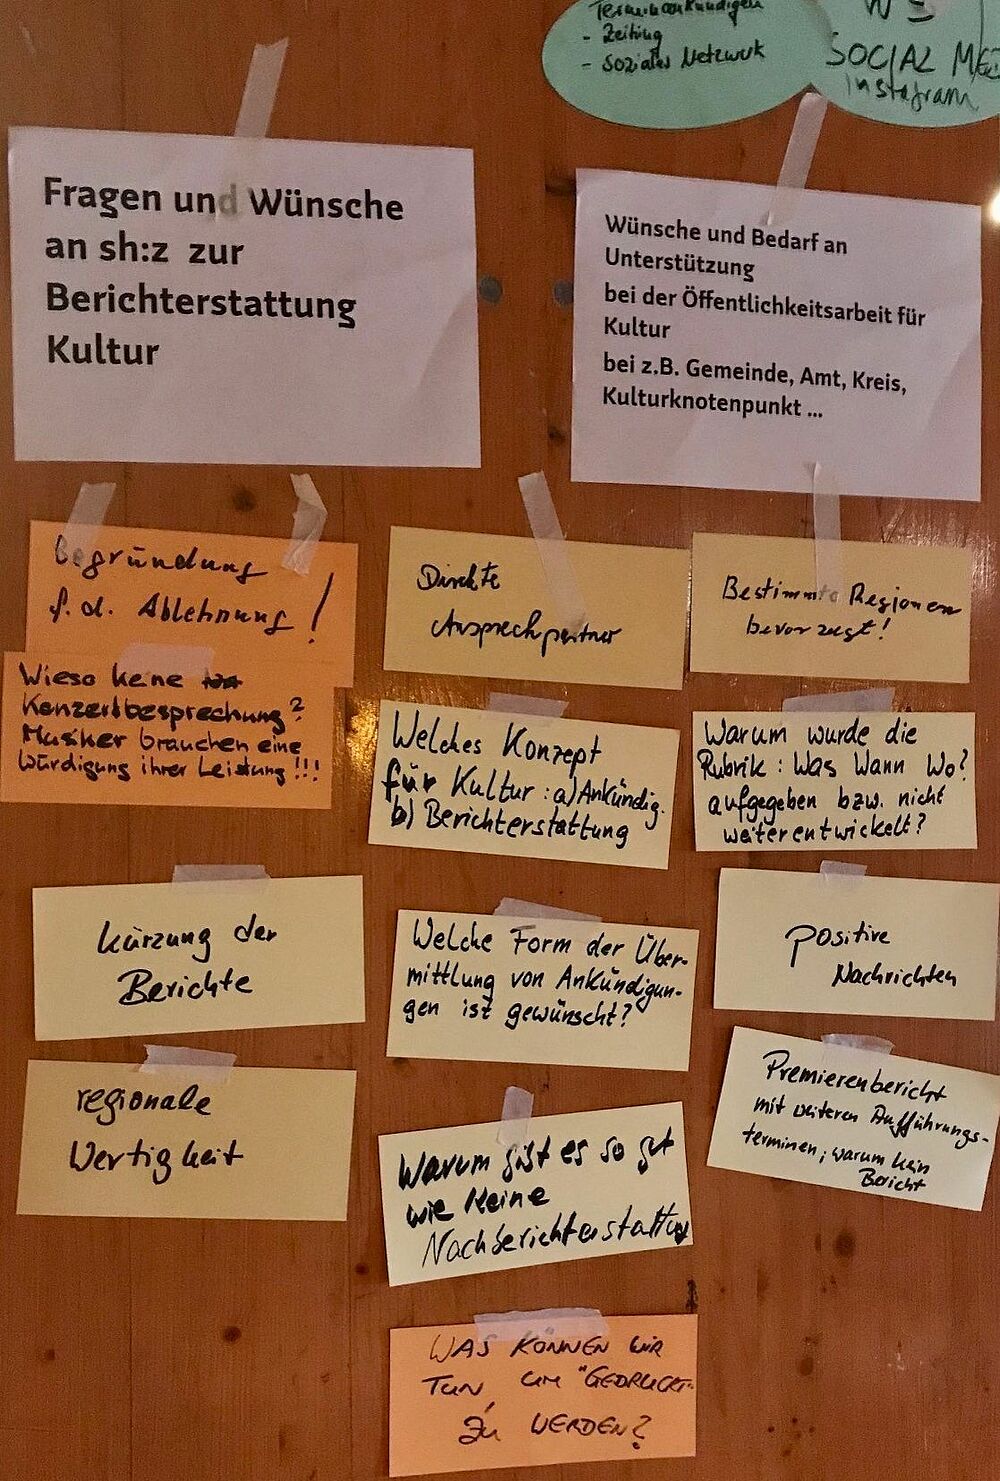 Terminankündigen
- Zeitung
- soziales Netzwerk
SOCIAL
Instagram
Fragen und Wünsche
an sh:z zur
Berichterstattung
Kultur
Wünsche und Bedarf an
Unterstützung
bei der Öffentlichkeitsarbeit für
Kultur
bei z.B. Gemeinde, Amt, Kreis,
Kulturknotenpunkt ...
Begründung
f. d. Ablehnung !
Wieso keine
Konzertbesprechung?
Musiker brauchen eine
Würdigung ihrer Leistung!!!
Kürzung der
Berichte
regionale
Wertigkeit
Direkte
Ansprechpartner
Welches Konzept
für Kultur: a) Ankündig.
b) Berichterstattung
Welche Form der Über-
mittlung von Ankündigun-
gen ist gewünscht?
Warum gibt es so gut
wie keine
Nachberichterstattung
WAS KÖNNEN WIR
TUN, UM "GEDRUCKT"
ZU WERDEN?
Bestimmte Regionen
bevorzugt!
Warum wurde die
Rubrik: Was Wann Wo?
aufgegeben bzw. nicht
weiterentwickelt?
positive
Nachrichten
Premierenbericht
mit weiteren Aufführungs-
terminen, warum kein
Bericht